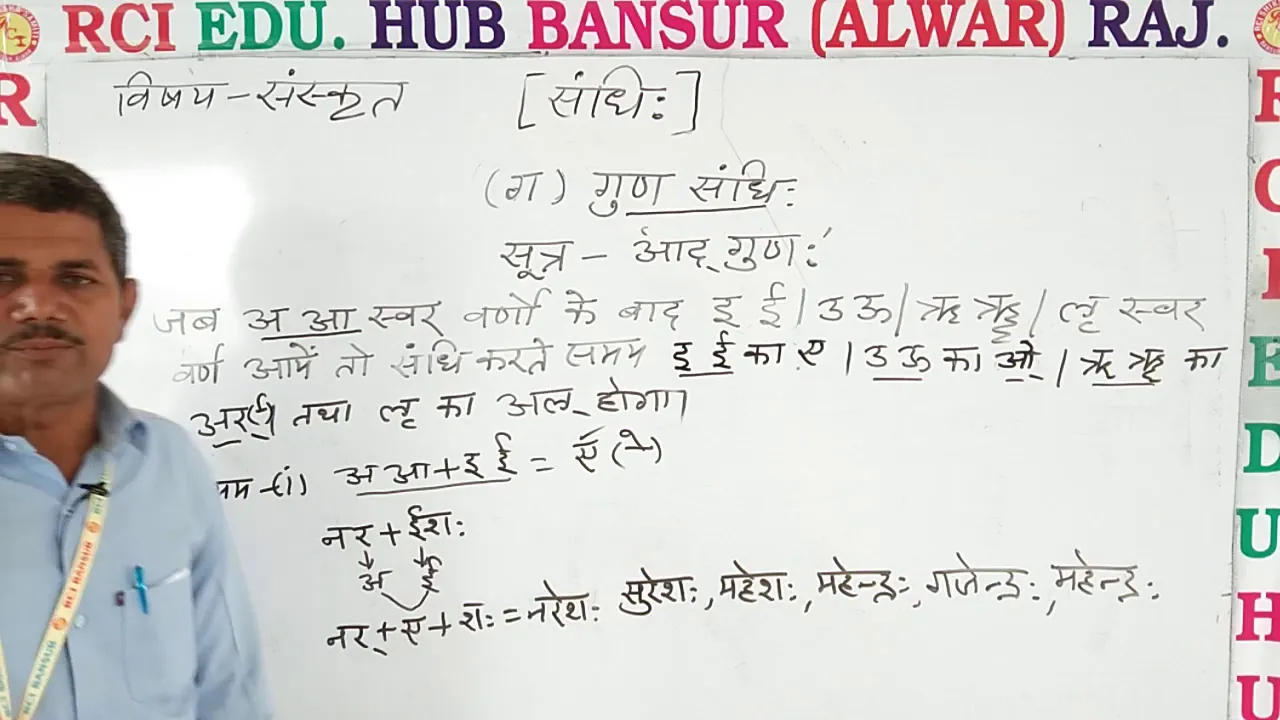 RCI EDU. HUB BANSUR (ALWAR) RAJ.
विषय - संस्कृत [संधिः]
(ग) गुण संधिः
सूत्र - आद् गुणः
जब अ आ स्वर वर्णो के बाद इ ई / उ ऊ / ऋ ॠ / लृ स्वर
वर्ण आयें तो संधि करते समय इ ई का ए / उ ऊ का ओ / ऋ ॠ का
अर् तथा लृ का अल् होगा।
(i) अ आ + इ ई = ए (े)
नर + ईशः
अ ई
नर् + ए + शः = नरेशः सुरेशः, महेशः, महेन्द्रः, गजेन्द्रः, महेन्द्रः
R
R C I E D U H U
RCI BANSUR